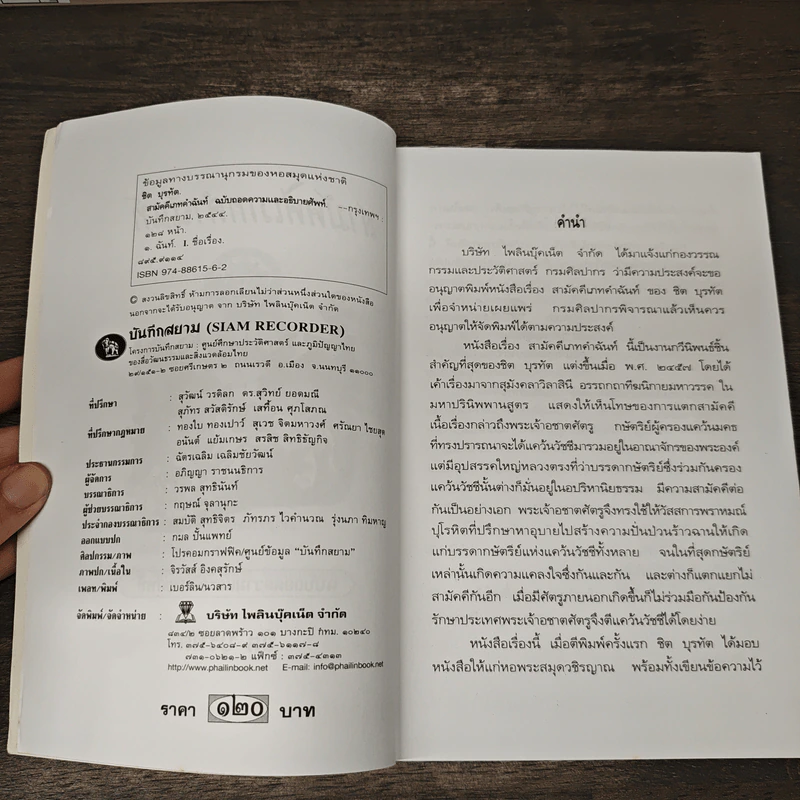 ข้อมูลทางบรรณานุกรมของหอสมุดแห่งชาติ
ชิต บุรทัต.
สามัคคีเภทคำฉันท์ ฉบับถอดความและอธิบายศัพท์. --กรุงเทพฯ :
บันทึกสยาม, ๒๕๔๔.
๑๒๘ หน้า.
๑. ฉันท์. I. ชื่อเรื่อง.
๘๙๕.๙๑๑๔
ISBN 974-88615-6-2
© สงวนลิขสิทธิ์ ห้ามการลอกเลียนไม่ว่าส่วนหนึ่งส่วนใดของหนังสือ
นอกจากจะได้รับอนุญาต จาก บริษัท ไพลินบุ๊คเน็ต จำกัด
บันทึกสยาม (SIAM RECORDER)
โครงการบันทึกสยาม : ศูนย์ศึกษาประวัติศาสตร์ และภูมิปัญญาไทย
ของสื่อวัฒนธรรมและสิ่งแวดล้อมไทย
๒๙/๑๕๑-๒ ซอยศรีเกษตร ๒ ถนนเรวดี อ.เมือง จ.นนทบุรี ๑๑๐๐๐
ที่ปรึกษา : สุวัฒน์ วรดิลก ดร.สุวิทย์ ยอดมณี
สุภัทร สวัสดิรักษ์ เสทื้อน ศุภโสภณ
ที่ปรึกษากฎหมาย : ทองใบ ทองเปาว์ สุเวช จิตมหาวงศ์ ศรัณยา ไชยสุต
อนันต์ แย้มเกษร สรสิช สิทธิธัญกิจ
ประธานกรรมการ : ฉัตรเฉลิม เฉลิมชัยวัฒน์
ผู้จัดการ : อภิญญา ราชนธิการ
บรรณาธิการ : วรพล สุทธินันท์
ผู้ช่วยบรรณาธิการ : กฤษณ์ จุลานุกะ
ประจำกองบรรณาธิการ : สมบัติ สุทธิจิตร ภัทรภร ไวคำนวณ รุ่งนภา ทิมหาญ
ออกแบบปก : กมล ปั้นแพทย์
ศิลปกรรม/ภาพ : โปรคอมกราฟฟิค/ศูนย์ข้อมูล "บันทึกสยาม"
ภาพปก/เนื้อใน : จิรวัสส์ อิงคสุรักษ์
เพลท/พิมพ์ : เบอร์ลิน/นวสาร
จัดพิมพ์/จัดจำหน่าย : บริษัท ไพลินบุ๊คเน็ต จำกัด
๘๓๔/๒ ซอยลาดพร้าว ๑๐๑ บางกะปิ กทม. ๑๐๒๔๐
โทร. ๓๗๕-๖๔๐๘-๙ ๓๗๕-๖๑๑๗-๘
๗๓๑-๐๖๒๑-๒ แฟ็กซ์ : ๓๗๕-๔๓๑๓
http://www.phailinbook.net E-mail: info@phailinbook.net
ราคา ๑๒๐ บาท
คำนำ
บริษัท ไพลินบุ๊คเน็ต จำกัด ได้มาแจ้งแก่กองวรรณ
กรรมและประวัติศาสตร์ กรมศิลปากร ว่ามีความประสงค์จะขอ
อนุญาตพิมพ์หนังสือเรื่อง สามัคคีเภทคำฉันท์ ของ ชิต บุรทัต
เพื่อจำหน่ายเผยแพร่ กรมศิลปากรพิจารณาแล้วเห็นควร
อนุญาตให้จัดพิมพ์ได้ตามความประสงค์
หนังสือเรื่อง สามัคคีเภทคำฉันท์ นี้เป็นงานกวีนิพนธ์ชิ้น
สำคัญที่สุดของชิต บุรทัต แต่งขึ้นเมื่อ พ.ศ. ๒๔๕๗ โดยได้
เค้าเรื่องมาจากสุมังคลาวิลาสินี อรรถกถาทีฆนิกายมหาวรรค ใน
มหาปรินิพพานสูตร แสดงให้เห็นโทษของการแตกสามัคคี
เนื้อเรื่องกล่าวถึงพระเจ้าอชาตศัตรู กษัตริย์ผู้ครองแคว้นมคธ
ที่ทรงปรารถนาจะได้แคว้นวัชชีมารวมอยู่ในอาณาจักรของพระองค์
แต่มีอุปสรรคใหญ่หลวงตรงที่ว่าบรรดากษัตริย์ซึ่งร่วมกันครอง
แคว้นวัชชีนั้นต่างก็มั่นอยู่ในอปริหานิยธรรม มีความสามัคคีต่อ
กันเป็นอย่างเอก พระเจ้าอชาตศัตรูจึงทรงใช้ให้วัสสการพราหมณ์
ปุโรหิตที่ปรึกษาหาอุบายไปสร้างความปั่นป่วนร้าวฉานให้เกิด
แก่บรรดากษัตริย์แห่งแคว้นวัชชีทั้งหลาย จนในที่สุดกษัตริย์
เหล่านั้นเกิดความแคลงใจซึ่งกันและกัน และต่างก็แตกแยกไม่
สามัคคีกันอีก เมื่อมีศัตรูภายนอกเกิดขึ้นก็ไม่ร่วมมือกันป้องกัน
รักษาประเทศพระเจ้าอชาตศัตรูจึงตีแคว้นวัชชีได้โดยง่าย
หนังสือเรื่องนี้ เมื่อตีพิมพ์ครั้งแรก ชิต บุรทัต ได้มอบ
หนังสือให้แก่หอพระสมุดวชิรญาณ พร้อมทั้งเขียนข้อความไว้